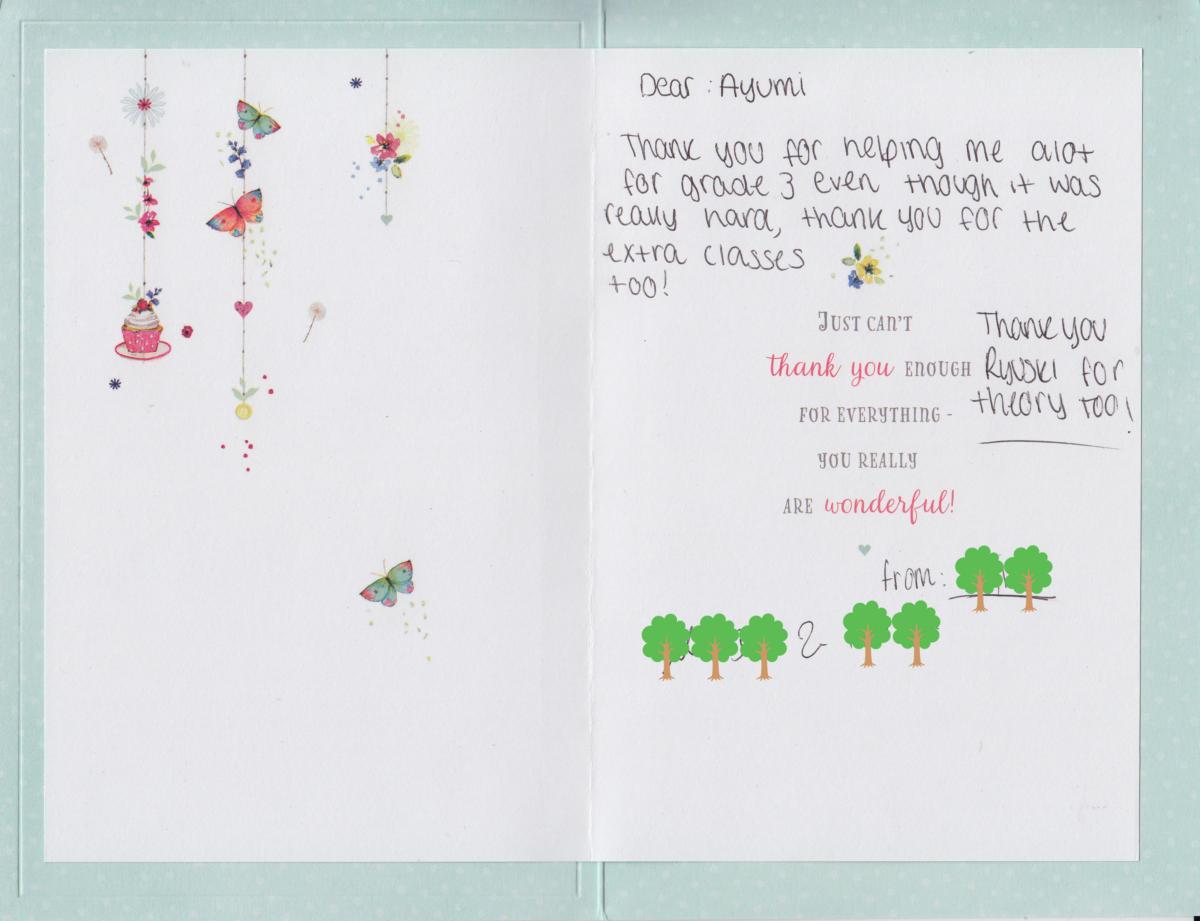 Dear : Ayumi
Thank you for helping me alot
for grade 3 even though it was
really hard, thank you for the
extra classes
too!
JUST CAN'T
thank you ENOUGH
FOR EVERYTHING -
YOU REALLY
ARE wonderful!
Thank you
for
theory too!
from:
&